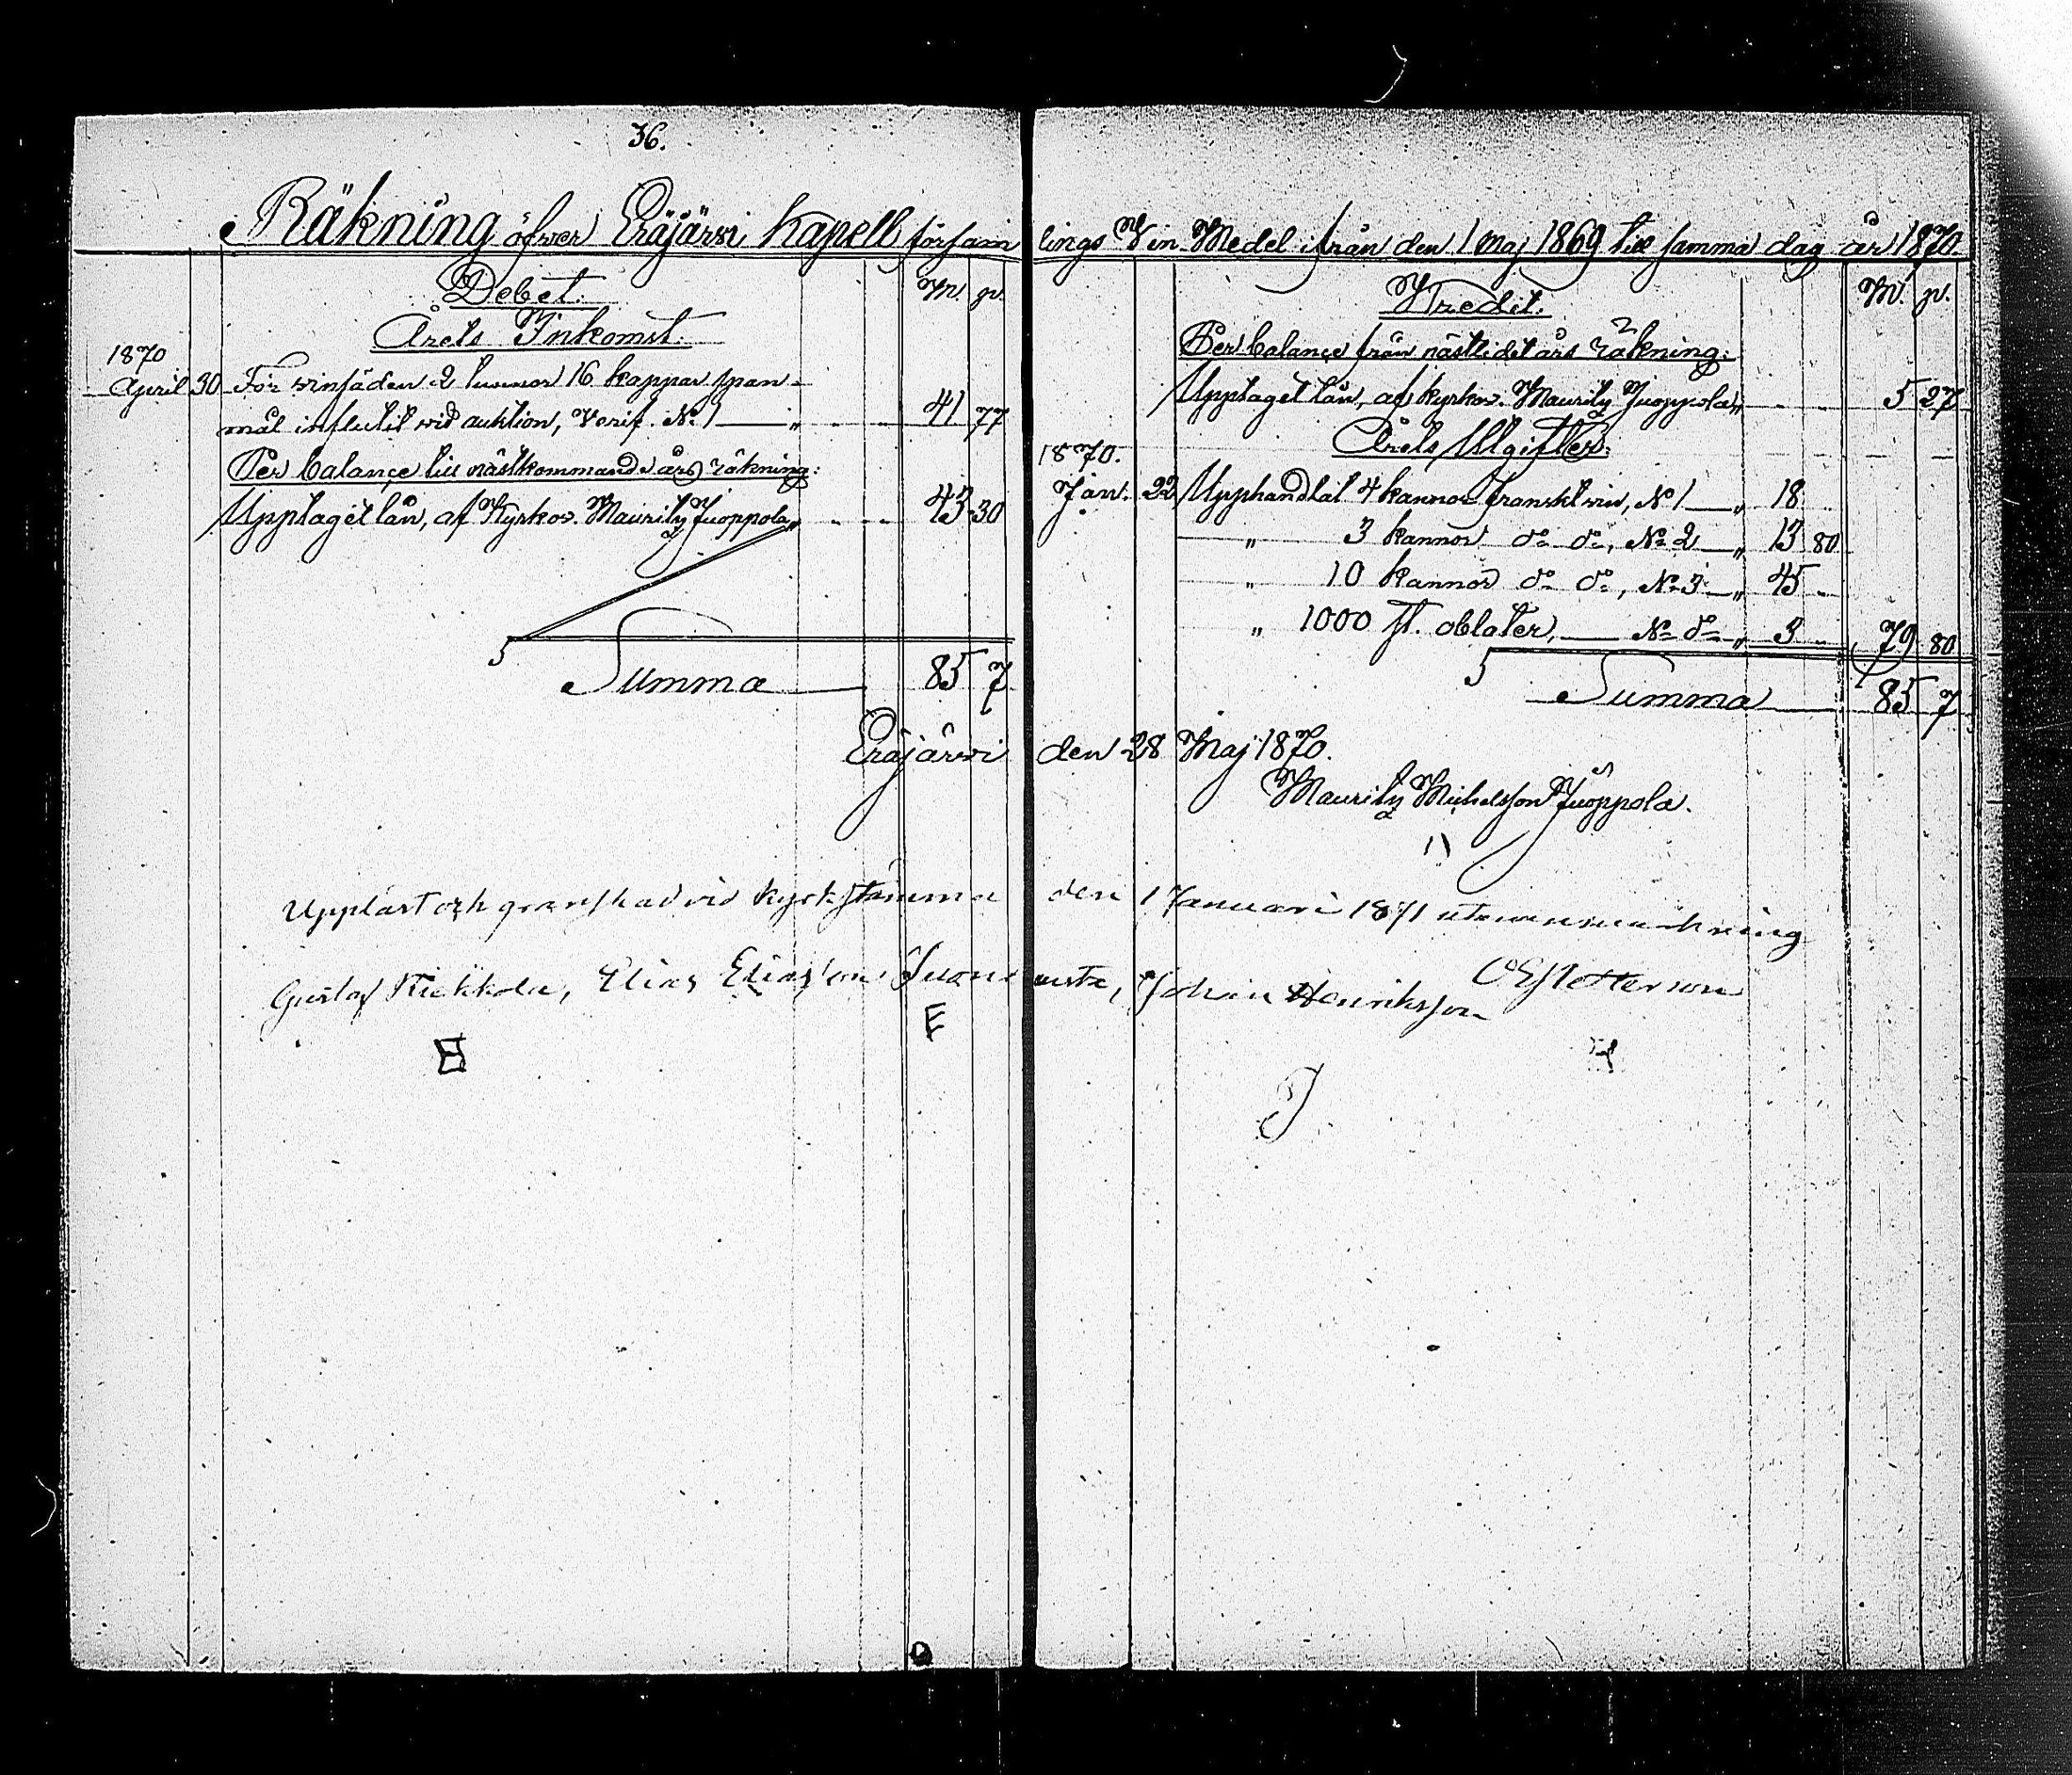 36.
Räkning öfwer Eräjärwi Kapell församlings Vin Medel ifrån den 1 Maj 1869 till samma dag år 1870.
Debet. M. p.
Årets Inkomst.
1870
April 30 För winsäden 2 tunnor 16 kappar span-
mål influtit wid auktion, Verif. No 1 — „ 41 77
Per balançe till nästkommande års räkning:
Upptaget lån, af Kyrkov. Mauritz Juoppola „ 43 30
Summa 85 7
Kredit. M. p.
Per balançe från nästlidet års räkning:
Upptaget lån, af Kyrkov. Mauritz Juoppola „ 5 27
Årets Utgifter:
1870.
Jan. 22 Upphandlat 4 kannor franskt vin, No 1 — „ 18 „
„ 3 kannor do do, No 2 — „ 13 80
„ 10 kannor do do, No 3 — „ 45 „
„ 1000 st. oblater, — No do „ 3 „ 79 80
Summa 85 7
Eräjärwi den 28 Maj 1870.
Mauritz Michelsson Juoppola.
Uppläst och granskad vid Kyrkstämma den 1 Januari 1871 utan anmärkning
Gustaf Elias Eliasson Johan Henriksson
E